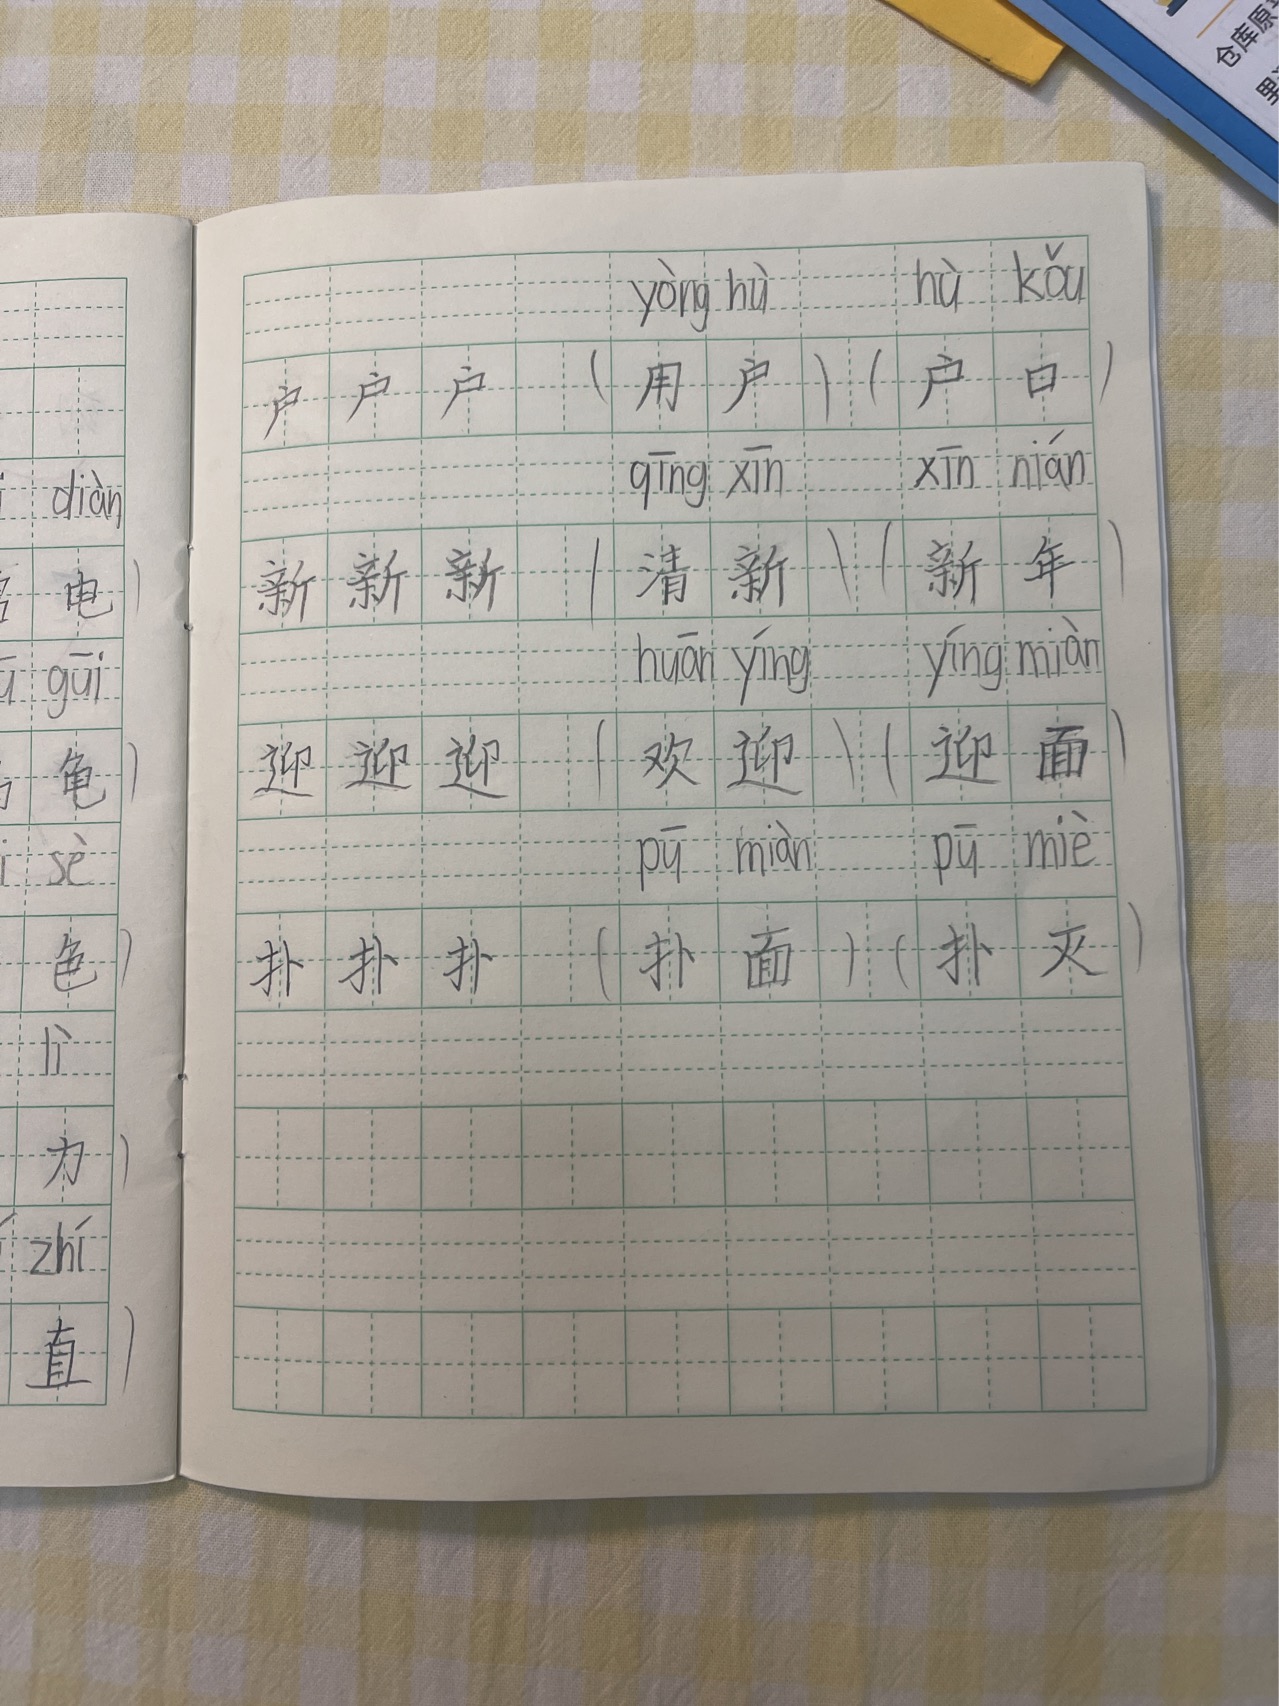 仓库原
diàn
电
gūi
龟
sè
色
lì
力
zhí
直
yòng hù hù kǒu
户 户 户 ( 用 户 ) ( 户 口 )
qīng xīn xīn nián
新 新 新 ( 清 新 ) ( 新 年 )
huān yíng yíng miàn
迎 迎 迎 ( 欢 迎 ) ( 迎 面 )
pū miàn pū miè
扑 扑 扑 ( 扑 面 ) ( 扑 灭 )